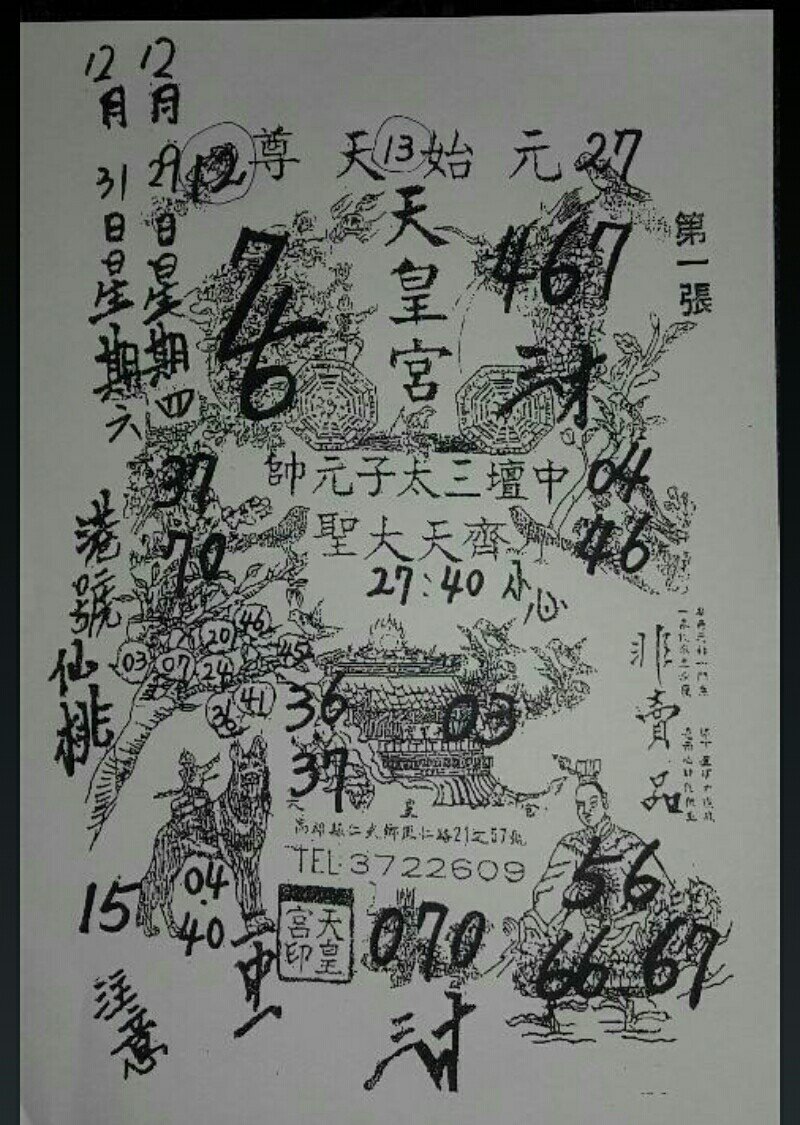 12月29日星期四
12月31日星期六
港號仙桃
12 尊天 13 始元 27
天皇宮
第一張
7
6
467
三才
37
70
帥元子太三壇中
04
46
聖大天齊
27:40 小心
46
20
45
03
07
24
41
36
36
37
03
非賣品
天皇宮
高雄縣仁武鄉鳳仁路21之57號
TEL:3722609
15
04.40
一中一
天皇宮印
070
三才
56
66 67
注意